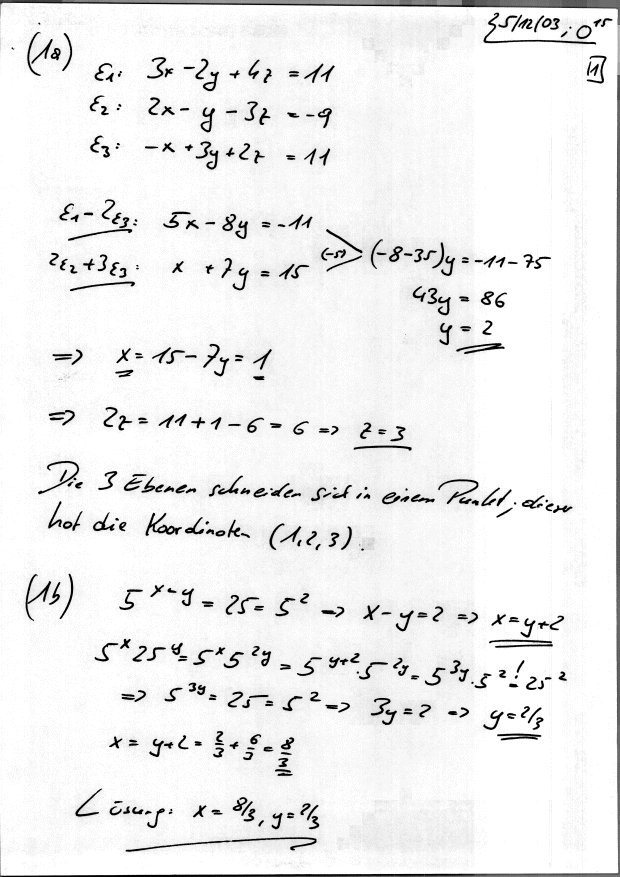 5/12/03; 0¹⁵
1
(1a)
ε₁: 3x - 2y + 4z = 11
ε₂: 2x - y - 3z = -9
ε₃: -x + 3y + 2z = 11
ε₁ - 2ε₃: 5x - 8y = -11
(-5) (-8-35)y = -11-75
2ε₂ + 3ε₃: x + 7y = 15
43y = 86
y = 2
=> x = 15 - 7y = 1
=> 2z = 11 + 1 - 6 = 6 => z = 3
Die 3 Ebenen schneiden sich in einem Punkt; dieser
hat die Koordinaten (1,2,3).
(1b) 5^(x-y) = 25 = 5² => x - y = 2 => x = y+2
5^x 25^y = 5^x 5^(2y) = 5^(y+2) · 5^(2y) = 5^(3y) · 5² =! 25²
=> 5^(3y) = 25 = 5² => 3y = 2 => y = 2/3
x = y+2 = 2/3 + 6/3 = 8/3
Lösung: x = 8/3, y = 2/3